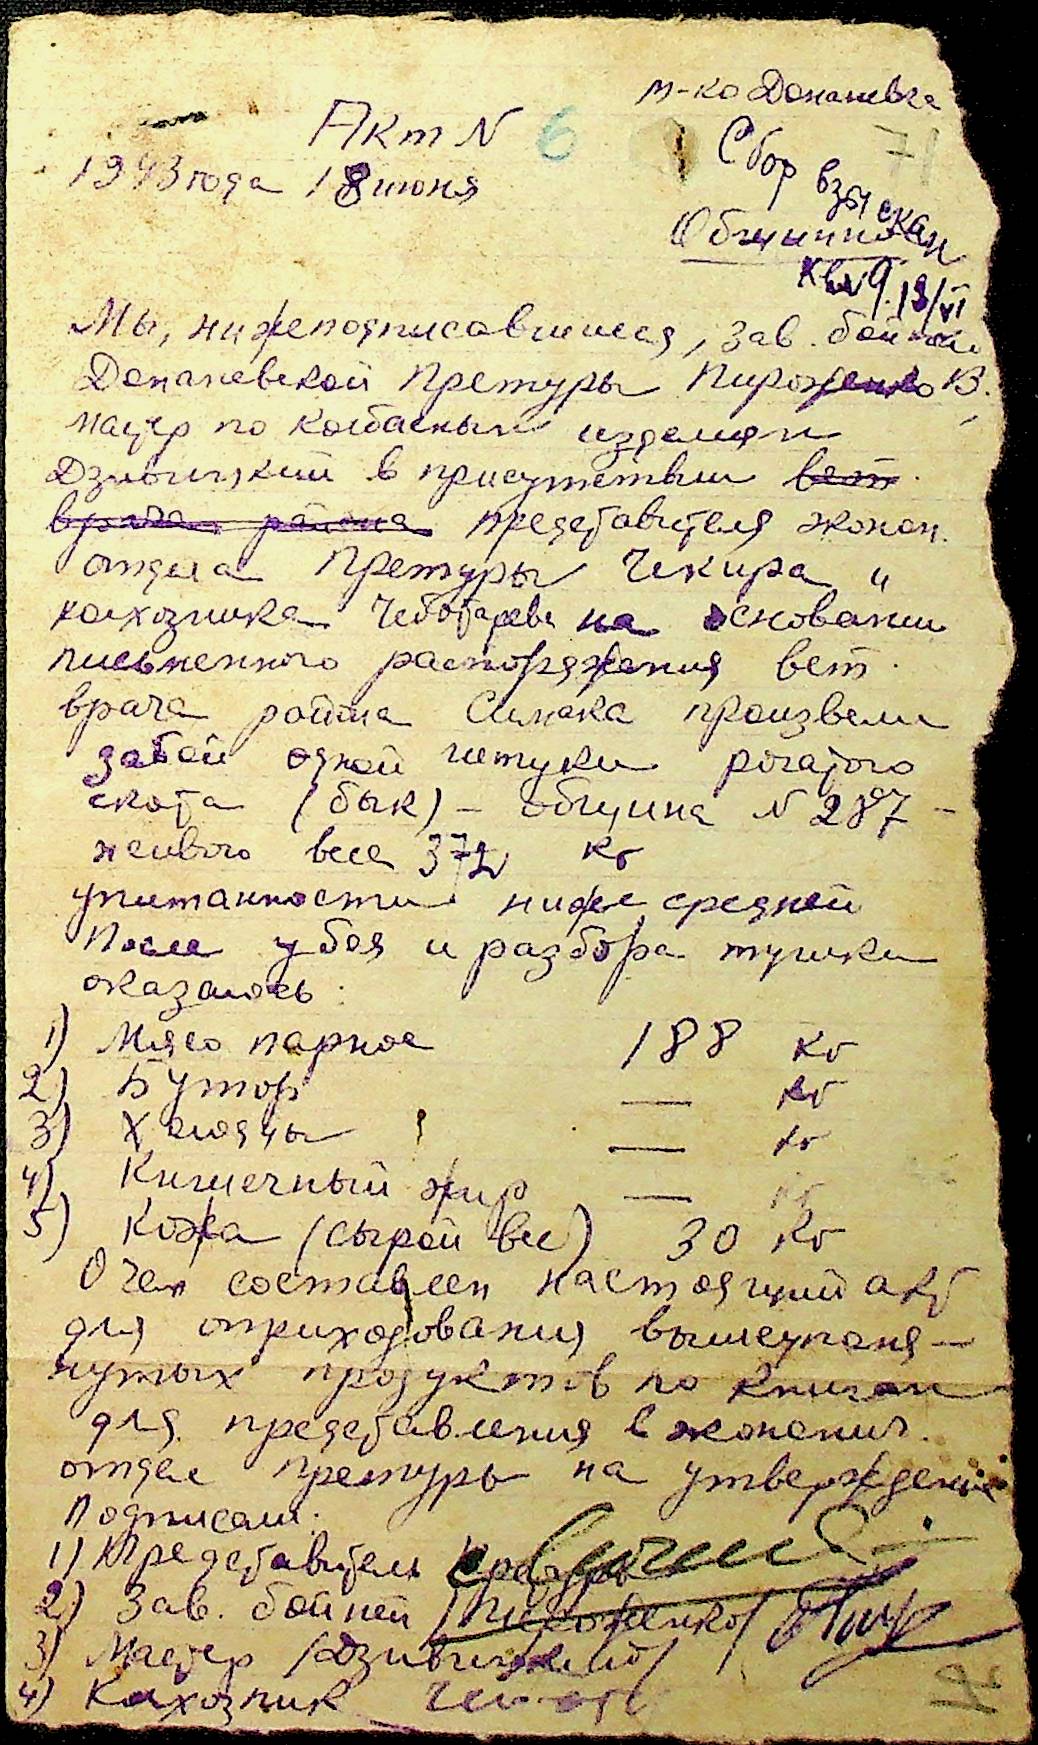 м-ко Доманевка
Акт N 6
71
1943 года 18 июня
Сбор взыскан
Общинно
кв 9. 19/VI
Мы, нижеподписавшиеся, зав. бойней
Доманевской Претуры Пироженко В.
мастер по колбасным изделиям
Дзивицкий в присутствии вет.
врача района представителя эконом.
отдела Претуры Чекира и
колхозника Чеботарева на основании
письменного распоряжения вет.
врача района Симака произвели
забой одной штуки рогатого
скота (бык) – община N 287 –
живого веса 372 кг
упитанности ниже средней
После убоя и разбора тушки
оказалось:
1) Мясо парное 188 кг
2) Бутор — кг
3) Холодцы — кг
4) Кишечный жир — кг
5) Кожа (сырой вес) 30 кг
О чем составлен настоящий акт
для оприходования вышеупомя-
нутых продуктов по книгам
для представления в экономич.
отдел претуры на утверждение
Подписали:
1) Представитель Претуры
2) Зав. бойней /Пироженко/
3) Мастер /Дзивицкий/
4) Колхозник